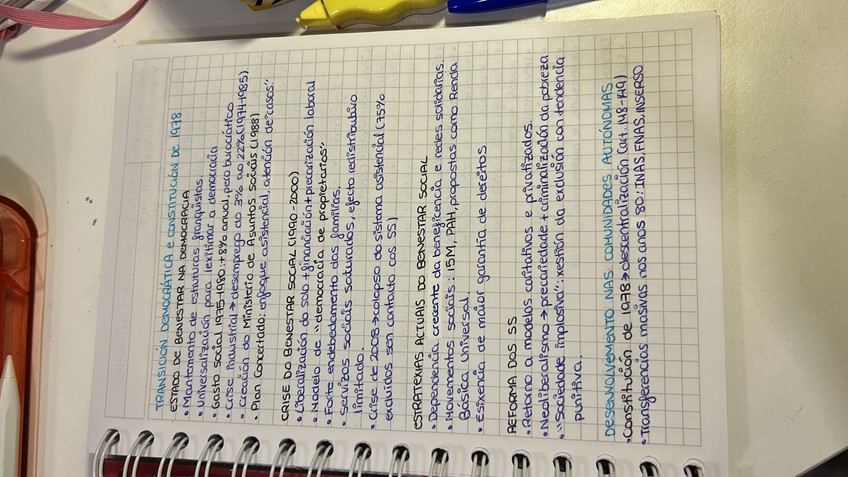 TRANSICIÓN DEMOCRÁTICA E CONSTITUCIÓN DE 1978
ESTADO DE BENESTAR NA DEMOCRACIA
• Mantemento de estruturas franquistas.
• Universalización para lexitimar a democracia
• Gasto social 1975-1980: +8% anual, pero burocrático
• Crise industrial → desemprego do 3% ao 22% (1974-1985)
• Creación do Ministerio de Asuntos Sociais (1988)
• Plan Concertado: enfoque asistencial, atención de "casos"
CRISE DO BENESTAR SOCIAL (1990-2000)
• Liberalización do solo + financiación + precarización laboral
• Modelo de "democracia de propietarios"
• Forte endebedamento das familias.
• Servizos sociais saturados, efecto redistributivo
limitado.
• Crise de 2008 → colapso do sistema asistencial (75%
excluídos sen contacto cos SS)
ESTRATEXIAS ACTUAIS DO BENESTAR SOCIAL
• Dependencia crecente da beneficencia e redes solidarias.
• Movementos sociais: 15M, PAH, propostas como Renda
Básica Universal.
• Esixencia de maior garantía de dereitos
REFORMA DOS SS
• Retorno a modelos caritativos e privatizados.
• Neoliberalismo → precariedade + criminalización da pobreza
• "Sociedade implosiva": xestión da exclusión con tendencia
punitiva.
DESENVOLVEMENTO NAS COMUNIDADES AUTÓNOMAS
• Constitución de 1978 → descentralización (art. 148-149)
• Transferencias masivas nos anos 80: INAS, FNAS, INSERSO